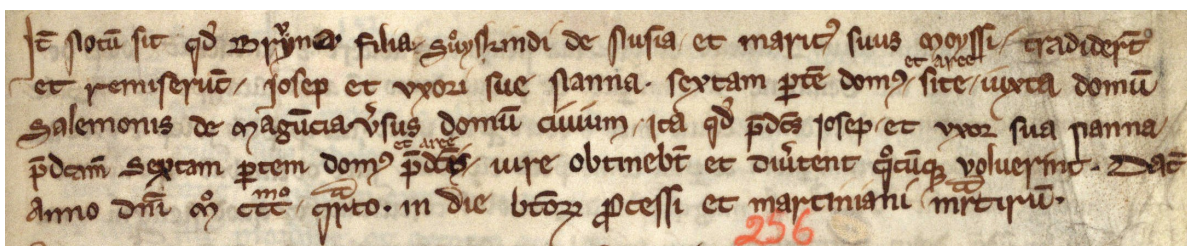 It̄ notū sit qd̓ Brŷna filia suͦyskindi de nusia et marit᷒ suus moyssi tradider̄t
et remiserūt iosep et vxori sue hanna sextam ꝑtē dom᷒ et aree site iuxta domū
Salemonis de magūcia v̓sus domū ciuium ita qd̓ p̄dc̄s iosep et vxor sua hanna
p̄dc̄am sextam ꝑtem dom᷒ et aree p̄dc̄is iure obtinebt̄ et diu̓tent q̊cūqꝫ voluerint Dat̄
anno dn̄i mͦ cccͫͦ qͣrto in die bt̄oꝝ ꝓcessi et martiniani mr̄tirū
256